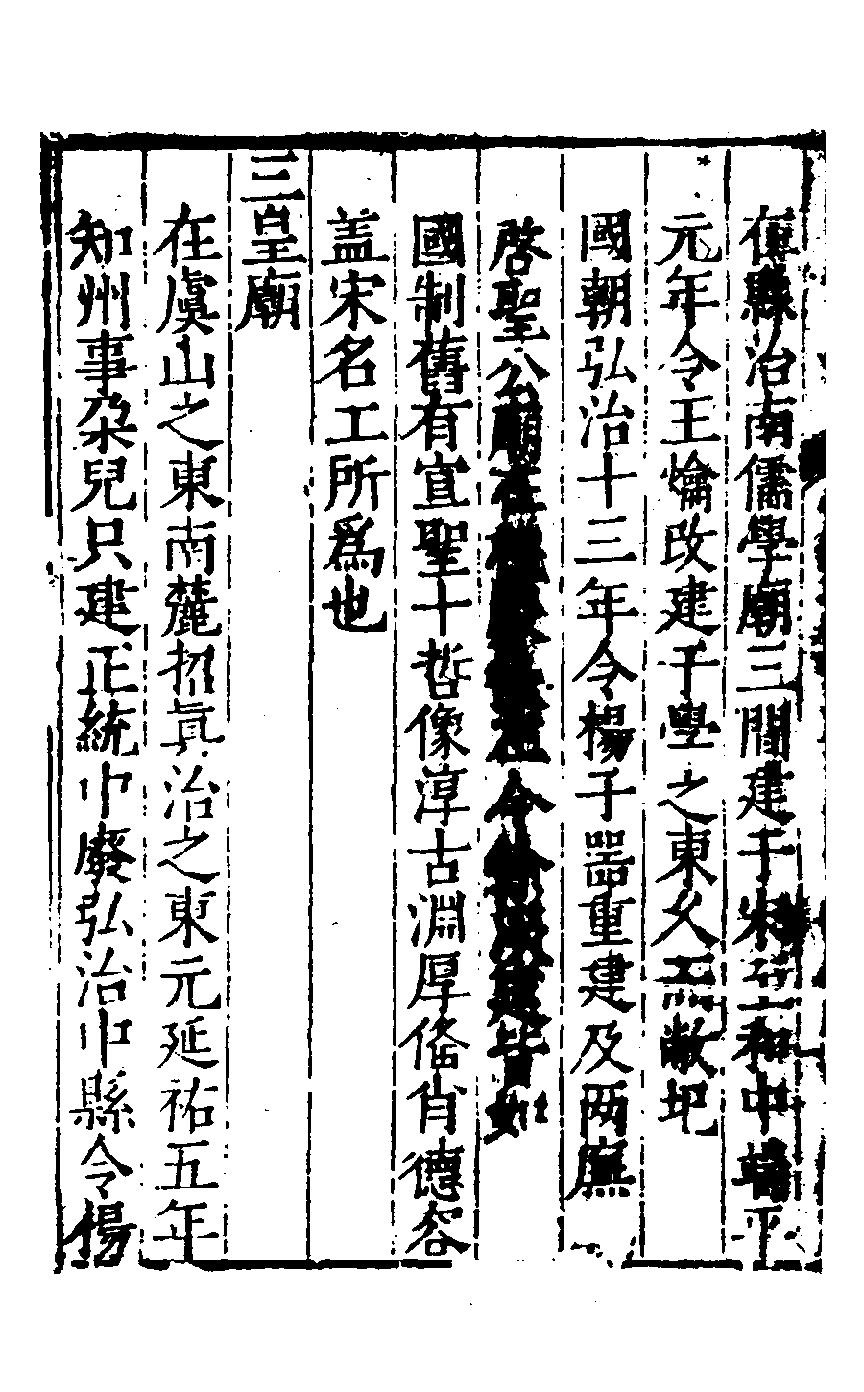 在縣治南儒學廟三間建于宋至和中端平
元年令王爚改建于學之東久而敝圯
國朝弘治十三年令楊子器重建及两廡
啓聖公廟在 令 建皆如
國制舊有宣聖十哲像淳古淵厚俻肖德容
盖宋名工所爲也
三皇廟
在虞山之東南麓招眞治之東元延祐五年
知州事朶兒只建正統中廢弘治中縣令楊